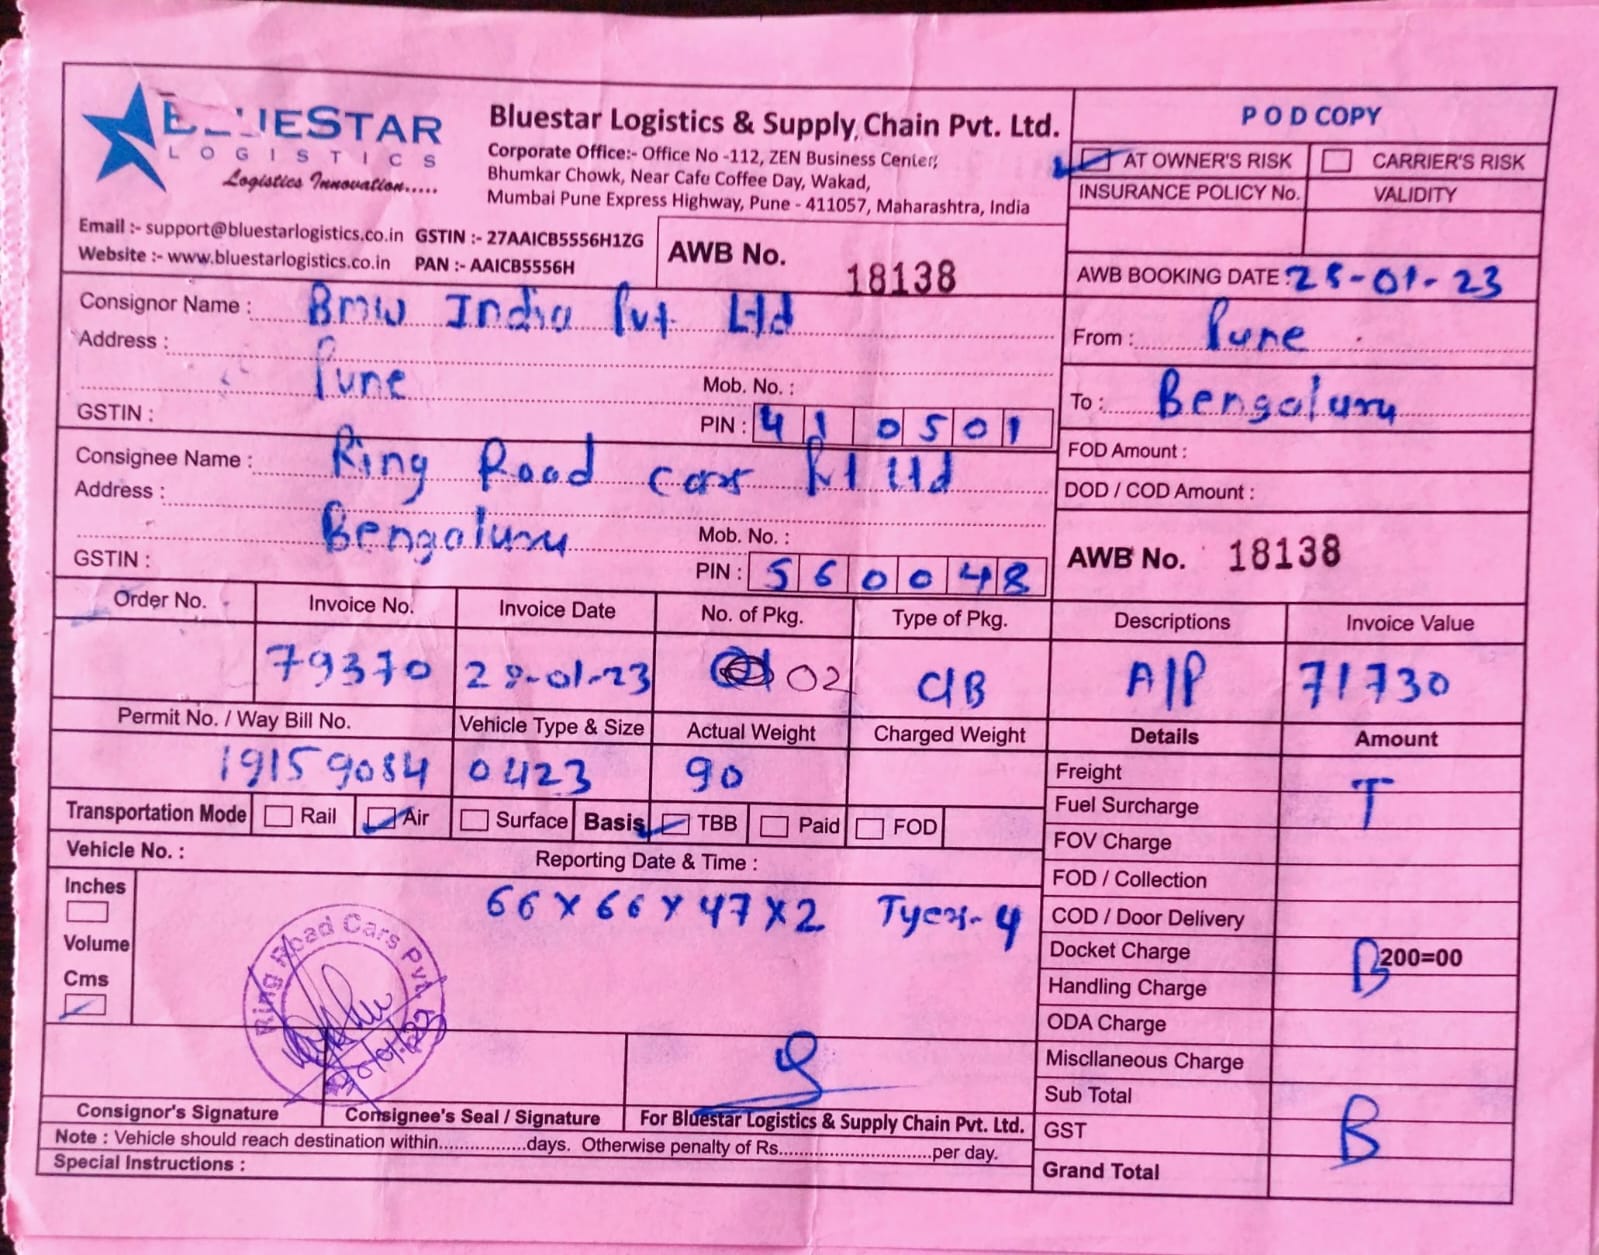 BLUESTAR
LOGISTICS
Logistics Innovation.....
Bluestar Logistics & Supply Chain Pvt. Ltd.
Corporate Office:- Office No -112, ZEN Business Center,
Bhumkar Chowk, Near Cafe Coffee Day, Wakad,
Mumbai Pune Express Highway, Pune - 411057, Maharashtra, India
Email :- support@bluestarlogistics.co.in GSTIN :- 27AAICB5556H1ZG
Website :- www.bluestarlogistics.co.in PAN :- AAICB5556H
AWB No. 18138
POD COPY
AT OWNER'S RISK CARRIER'S RISK
INSURANCE POLICY No. VALIDITY
AWB BOOKING DATE : 28-01-23
From : Pune
To : Bengaluru
FOD Amount :
DOD / COD Amount :
AWB No. 18138
Consignor Name : BMW India Pvt Ltd
Address :
Pune Mob. No. :
GSTIN : PIN : 410501
Consignee Name : Ring Road Cars Pvt Ltd
Address :
Bengaluru Mob. No. :
GSTIN : PIN : 560048
Order No. Invoice No. Invoice Date No. of Pkg. Type of Pkg. Descriptions Invoice Value
79370 28-01-23 02 C/B A/P 71730
Permit No. / Way Bill No. Vehicle Type & Size Actual Weight Charged Weight Details Amount
19159084 0423 90
Transportation Mode Rail Air Surface Basis TBB Paid FOD
Vehicle No. : Reporting Date & Time :
Inches
Volume
Cms
66 X 66 X 47 X 2
Ring Road Cars Pvt.
Freight T
Fuel Surcharge
FOV Charge
FOD / Collection
COD / Door Delivery
Docket Charge B 200=00
Handling Charge
ODA Charge
Miscllaneous Charge
Sub Total
GST B
Grand Total
Consignor's Signature Consignee's Seal / Signature For Bluestar Logistics & Supply Chain Pvt. Ltd.
Note : Vehicle should reach destination within................days. Otherwise penalty of Rs.............................per day.
Special Instructions :